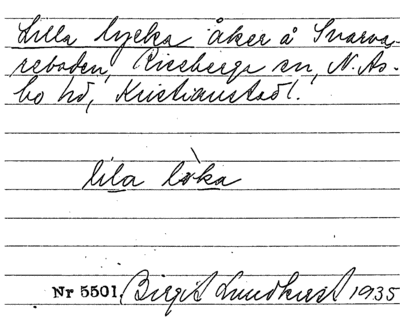 Lilla lycka åker å Svarva-
reboden, Riseberga sn, N. Ås-
bo hd, Kristianstad l.
lila löka
Nr 5501. Birgit Lundkvist 1935